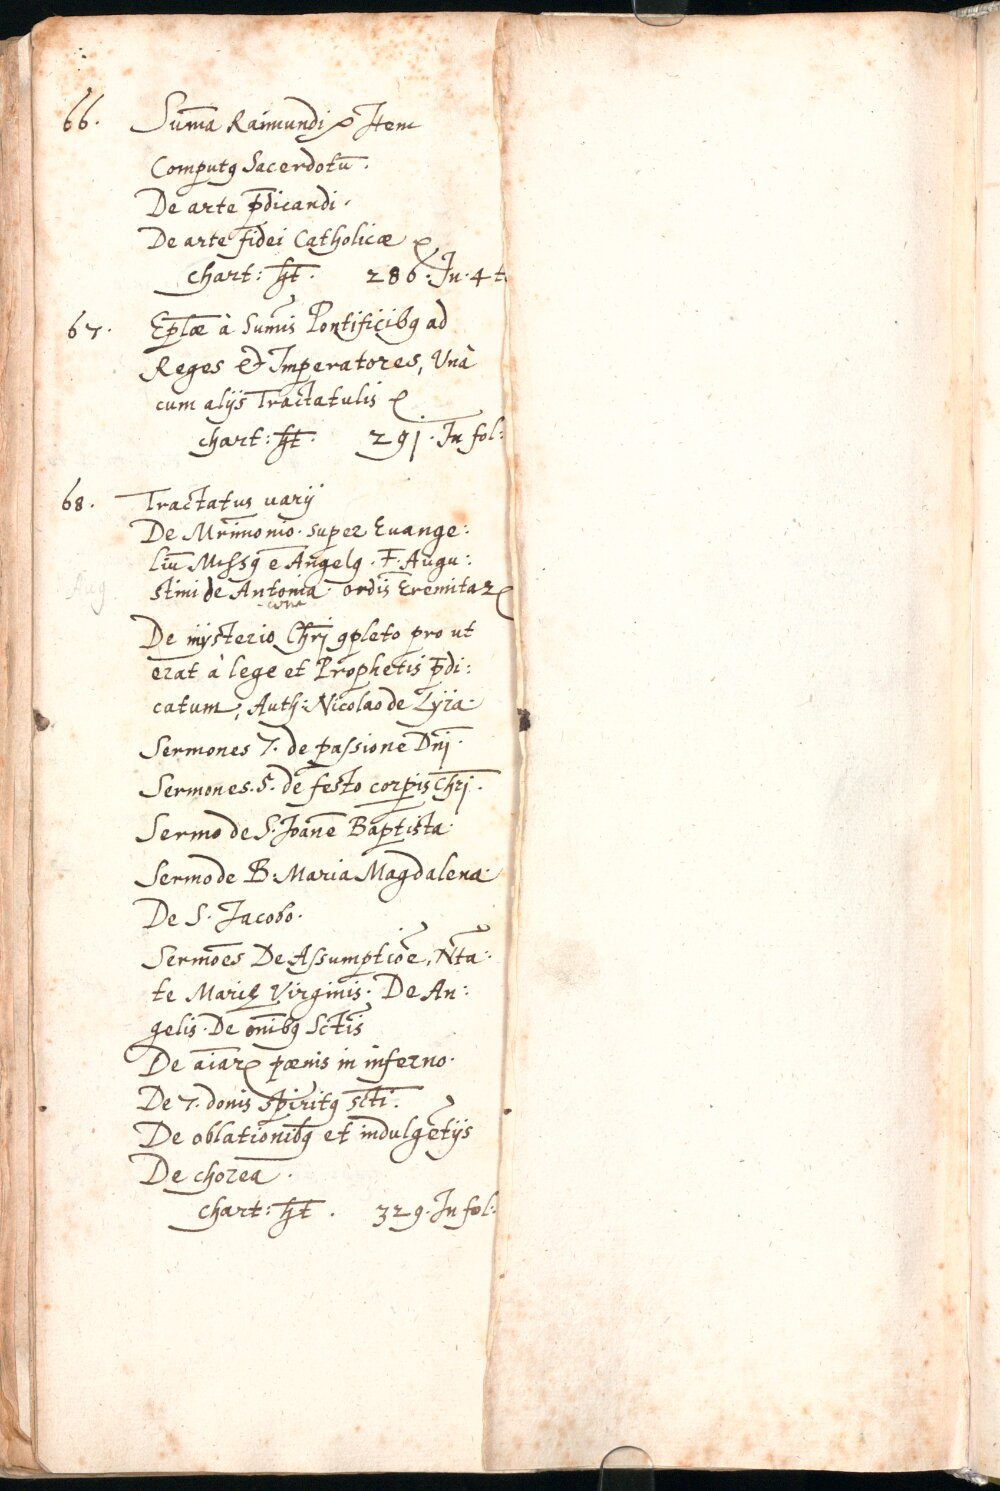 66. Sum̄a Raimundi & Item
Computꝯ Sacerdotū.
De arte p̄dicandi.
De arte fidei Catholicæ &
chart: h̄t. 286. In 4to
67. Ep̄læ à Sum̄is Pontificibꝯ ad
Reges et Imperatores, Unà
cum alijs Tractatulis &
chart: h̄t. 291. In fol:
68. Tractatus varij
De Mr̄imonio. super Euange:
liū Missꝯ ē Angelꝯ. F. Augu:
stini de Antonia. ordīs Eremitaꝝ
cona
De mysterio Chr̄i ꝯpleto pro ut
erat à lege et Prophetis p̄di:
catum, Auth: Nicolao de Lyra.
Sermones 7. de passione Dn̄j.
Sermones. 5. de festo corpīs Chr̄j.
Sermo de S. Joan̄e Baptista.
Sermo de B: Maria Magdalena.
De S. Jacobo.
Sermōes De Assumptiōe, Nt̄a:
te Marię Virginis. De An:
gelis. De om̄ibꝯ Sct̄is
De aīaꝝ pœnis in inferno.
De 7. donis spiritꝯ sct̄i.
De oblationibꝯ et indulgētijs
De chorea.
chart: h̄t. 329. In fol:
Aug